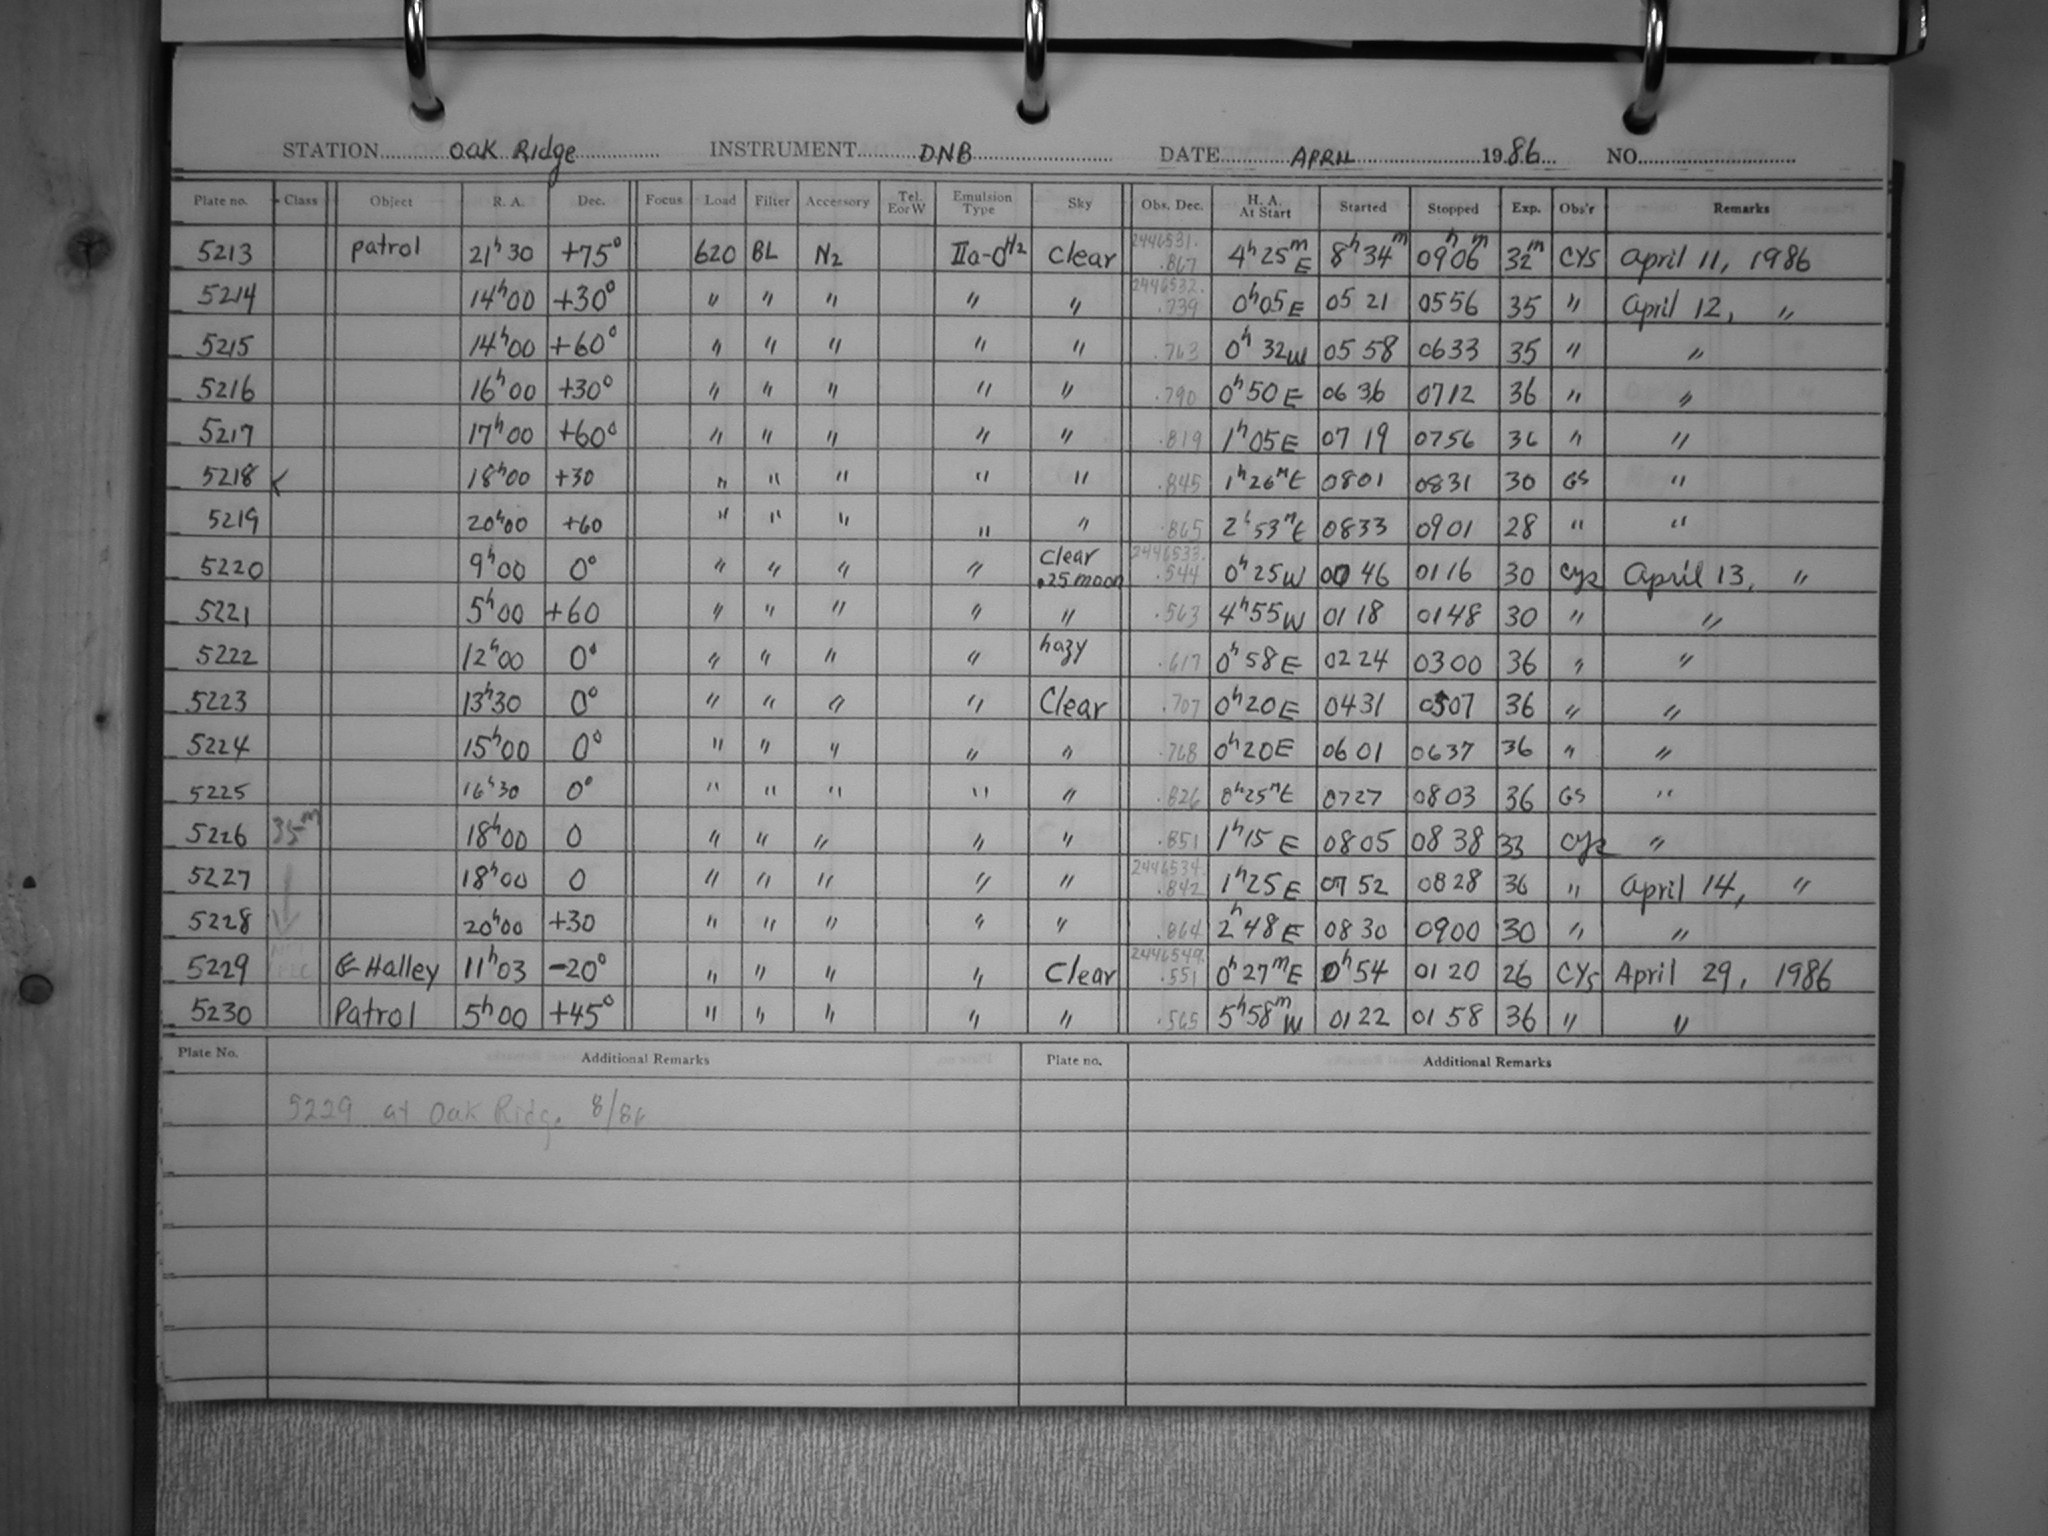 STATION Oak Ridge INSTRUMENT DNB DATE APRIL 1986 NO.
Plate no. Class Object R. A. Dec. Focus Load Filter Accessory Tel. E or W Emulsion Type Sky Obs. Dec. H. A. At Start Started Stopped Exp. Obs'r Remarks
5213 patrol 21h30 +75° 620 BL N2 IIa-O H2 Clear 2446531.867 4h25m E 8h34m 09h06m 32m CYS April 11, 1986
5214 14h00 +30° " " " " " 2446532.739 0h05 E 05 21 0556 35 " April 12, "
5215 14h00 +60° " " " " " .763 0h 32W 05 58 0633 35 " "
5216 16h00 +30° " " " " " .790 0h50 E 06 36 0712 36 " "
5217 17h00 +60° " " " " " .819 1h05E 07 19 0756 36 " "
5218 18h00 +30 " " " " " .845 1h26mE 0801 0831 30 GS "
5219 20h00 +60 " " " " " .865 2h53mE 0833 0901 28 " "
5220 9h00 0° " " " " Clear .25 moon 2446533.544 0h25W 00 46 0116 30 CYS April 13, "
5221 5h00 +60 " " " " " .563 4h55W 01 18 0148 30 " "
5222 12h00 0° " " " " hazy .617 0h58 E 02 24 0300 36 " "
5223 13h30 0° " " " " Clear .707 0h20E 0431 0507 36 " "
5224 15h00 0° " " " " " .768 0h20E 06 01 0637 36 " "
5225 16h30 0° " " " " " .826 0h25mE 0727 0803 36 GS "
5226 35m 18h00 0 " " " " " .851 1h15 E 0805 08 38 33 CYS "
5227 18h00 0 " " " " " 2446534.842 1h25E 07 52 0828 36 " April 14, "
5228 20h00 +30 " " " " " .864 2h48E 08 30 0900 30 " "
5229 Halley 11h03 -20° " " " " Clear 2446549.551 0h27mE 0h54 01 20 26 CYS April 29, 1986
5230 Patrol 5h00 +45° " " " " " .565 5h58m W 01 22 01 58 36 " "
Plate No. Additional Remarks Plate no. Additional Remarks
5229 at Oak Ridge 8/86